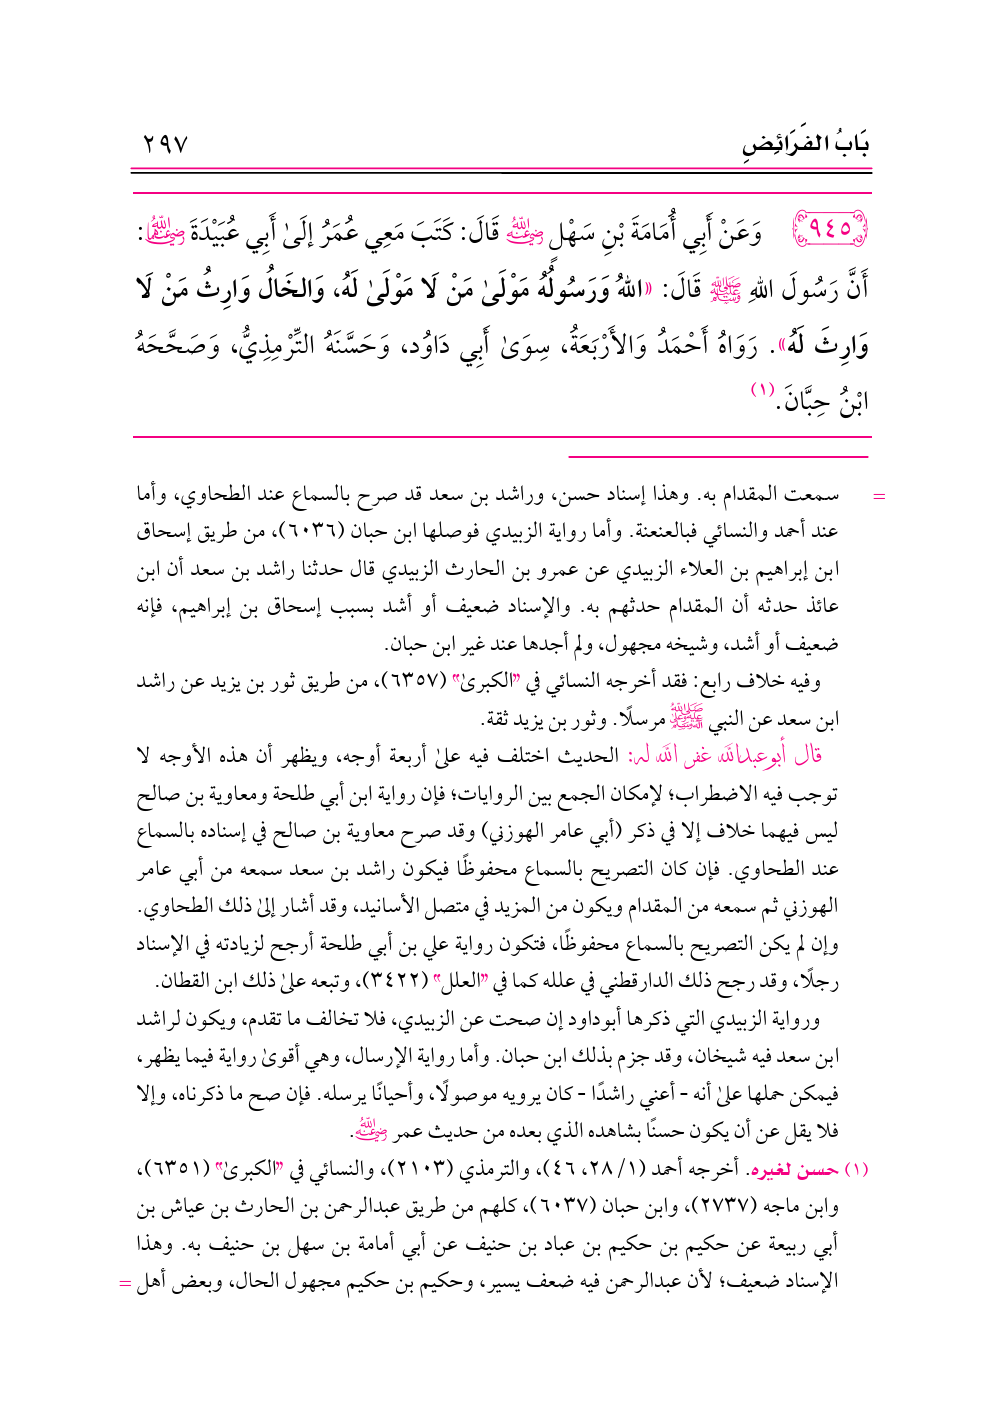 بَابُ الفَرَائِضِ ٢٩٧
٩٤٥ وَعَنْ أَبِي أُمَامَةَ بْنِ سَهْلٍ ﵁ قَالَ: كَتَبَ مَعِي عُمَرُ إلَىٰ أَبِي عُبَيْدَةَ ﵄:
أَنَّ رَسُولَ اللهِ ﷺ قَالَ: «اللهُ وَرَسُولُهُ مَوْلَىٰ مَنْ لَا مَوْلَىٰ لَهُ، وَالخَالُ وَارِثُ مَنْ لَا
وَارِثَ لَهُ». رَوَاهُ أَحْمَدُ وَالأَرْبَعَةُ، سِوَىٰ أَبِي دَاوُد، وَحَسَّنَهُ التِّرْمِذِيُّ، وَصَحَّحَهُ
ابْنُ حِبَّانَ.(١)
= سمعت المقدام به. وهذا إسناد حسن، وراشد بن سعد قد صرح بالسماع عند الطحاوي، وأما
عند أحمد والنسائي فبالعنعنة. وأما رواية الزبيدي فوصلها ابن حبان (٦٠٣٦)، من طريق إسحاق
ابن إبراهيم بن العلاء الزبيدي عن عمرو بن الحارث الزبيدي قال حدثنا راشد بن سعد أن ابن
عائذ حدثه أن المقدام حدثهم به. والإسناد ضعيف أو أشد بسبب إسحاق بن إبراهيم، فإنه
ضعيف أو أشد، وشيخه مجهول، ولم أجدها عند غير ابن حبان.
وفيه خلاف رابع: فقد أخرجه النسائي في "الكبرىٰ" (٦٣٥٧)، من طريق ثور بن يزيد عن راشد
ابن سعد عن النبي ﷺ مرسلًا. وثور بن يزيد ثقة.
قال أبو عبدالله غفر الله له: الحديث اختلف فيه علىٰ أربعة أوجه، ويظهر أن هذه الأوجه لا
توجب فيه الاضطراب؛ لإمكان الجمع بين الروايات؛ فإن رواية ابن أبي طلحة ومعاوية بن صالح
ليس فيهما خلاف إلا في ذكر (أبي عامر الهوزني) وقد صرح معاوية بن صالح في إسناده بالسماع
عند الطحاوي. فإن كان التصريح بالسماع محفوظًا فيكون راشد بن سعد سمعه من أبي عامر
الهوزني ثم سمعه من المقدام ويكون من المزيد في متصل الأسانيد، وقد أشار إلىٰ ذلك الطحاوي.
وإن لم يكن التصريح بالسماع محفوظًا، فتكون رواية علي بن أبي طلحة أرجح لزيادته في الإسناد
رجلًا، وقد رجح ذلك الدارقطني في علله كما في "العلل" (٣٤٢٢)، وتبعه علىٰ ذلك ابن القطان.
ورواية الزبيدي التي ذكرها أبوداود إن صحت عن الزبيدي، فلا تخالف ما تقدم، ويكون لراشد
ابن سعد فيه شيخان، وقد جزم بذلك ابن حبان. وأما رواية الإرسال، وهي أقوىٰ رواية فيما يظهر،
فيمكن حملها علىٰ أنه - أعني راشدًا - كان يرويه موصولًا، وأحيانًا يرسله. فإن صح ما ذكرناه، وإلا
فلا يقل عن أن يكون حسنًا بشاهده الذي بعده من حديث عمر ﵁.
(١) حسن لغيره. أخرجه أحمد (١/ ٢٨، ٤٦)، والترمذي (٢١٠٣)، والنسائي في "الكبرىٰ" (٦٣٥١)،
وابن ماجه (٢٧٣٧)، وابن حبان (٦٠٣٧)، كلهم من طريق عبدالرحمن بن الحارث بن عياش بن
أبي ربيعة عن حكيم بن حكيم بن عباد بن حنيف عن أبي أمامة بن سهل بن حنيف به. وهذا
الإسناد ضعيف؛ لأن عبدالرحمن فيه ضعف يسير، وحكيم بن حكيم مجهول الحال، وبعض أهل =